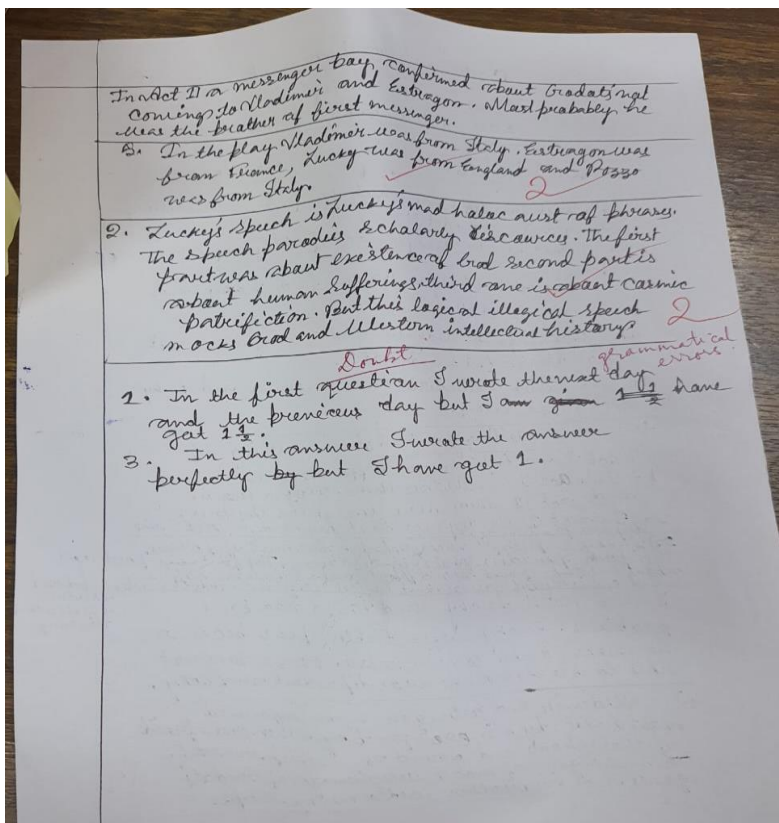 In Act II a messenger boy confirmed about Godot's not
coming to Vladimir and Estragon. Most probably he
was the brother of first messenger.
5. In the play Vladimir was from Italy. Estragon was
from France, Lucky was from England and Pozzo
was from Italy.
2
2. Lucky's speech is Lucky's mad holoc aust of phrases.
The speech parodies scholarly discources. The first
part was about existence of God second part is
about human sufferings third one is about cosmic
patrifiction. But this logical illogical speech
mocks God and Western intellectual history
2
Doubt
grammatical
errors.
1. In the first question I wrote the next day
and the previous day but I 1 1/2 have
got 1 1/2.
3. In this answer I wrote the answer
perfectly but I have got 1.